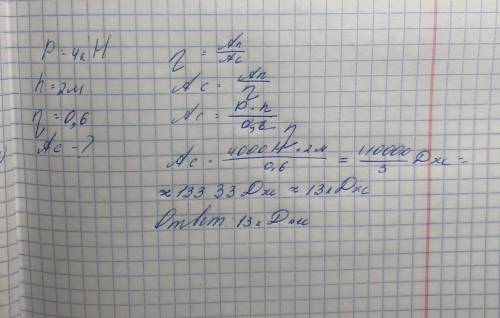 P = 4кН
h = 2м
η = 0,6
Ac - ?
η = Aп/Ac
Ac = Aп/η
Ac = P·h/η
Ac = 4000Н·2м/0,6 = 40000/3 Дж =
≈ 13333 Дж ≈ 13кДж
Ответ: 13кДж